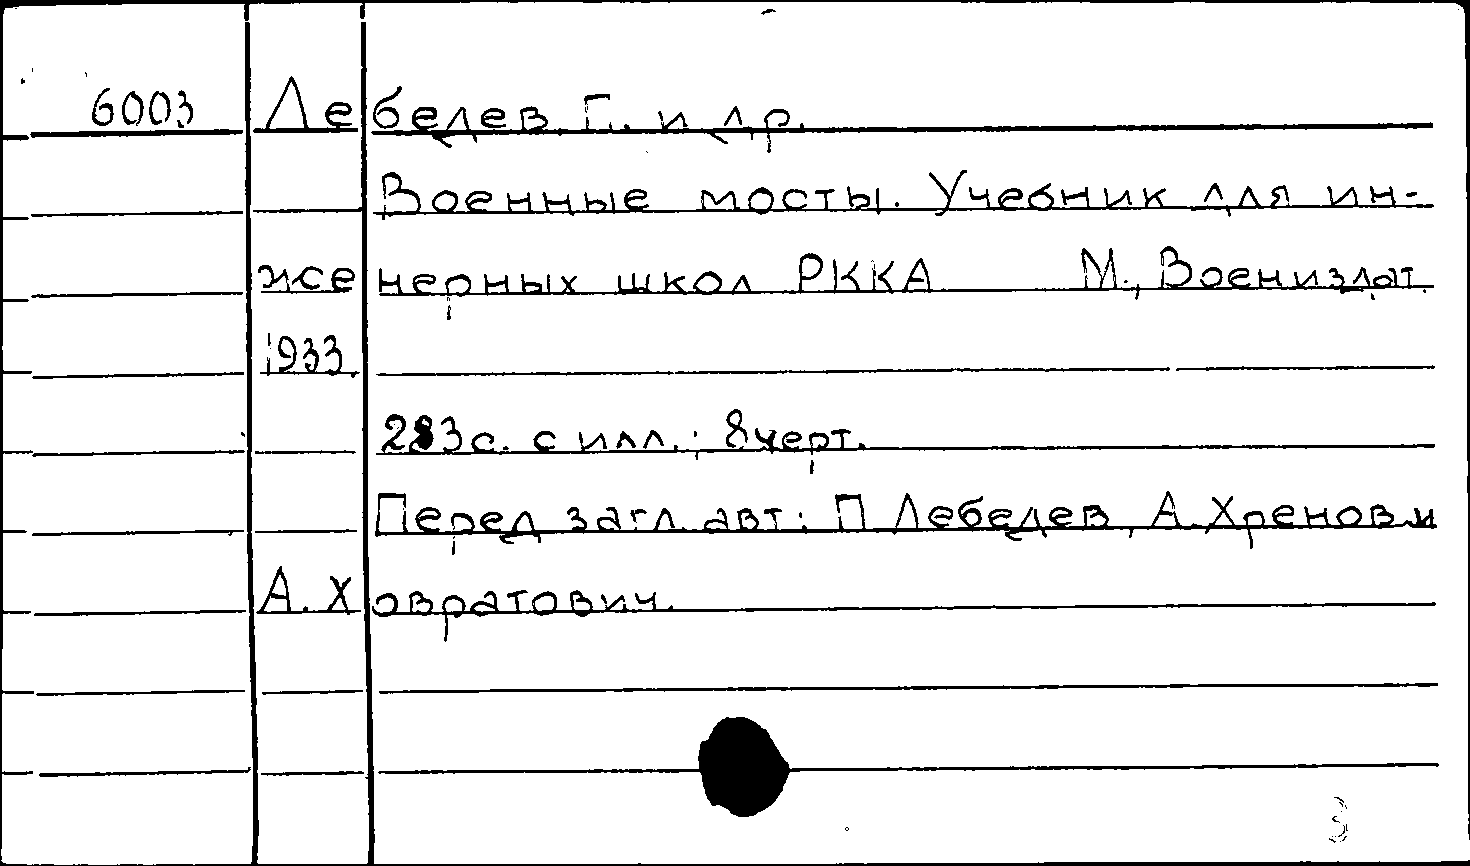 6003 Лебедев, Г. и др.
Военные мосты. Учебник для ин-
женерных школ РККА М., Воениздат.
1933.
283 с. с илл.; 8 черт.
Перед загл. авт: П Лебедев, А. Хренов и
А. Ховратович.
3